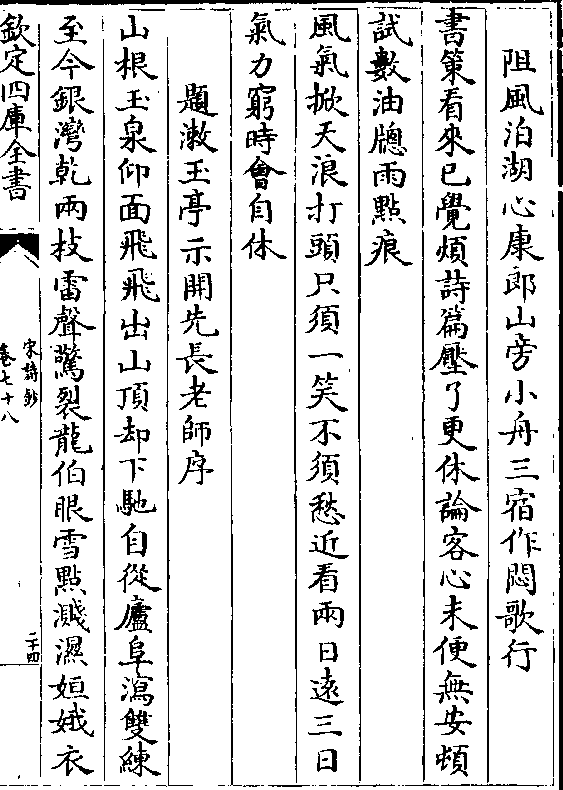 阻風泊湖心康郎山旁小舟三宿作悶歌行
書策看來已覺煩詩篇壓了更休論客心未便無安頓
試數油牕雨點痕
風氣掀天浪打頭只須一笑不須愁近看兩日遠三日
氣力窮時會自休
題漱玉亭示開先長老師序
山根玉泉仰面飛飛出山頂却下馳自從廬阜瀉雙練
至今銀灣乾兩枝雷聲驚裂龍伯眼雪點濺濕姮娥衣
欽定四庫全書
宋詩鈔
卷七十八
二十四